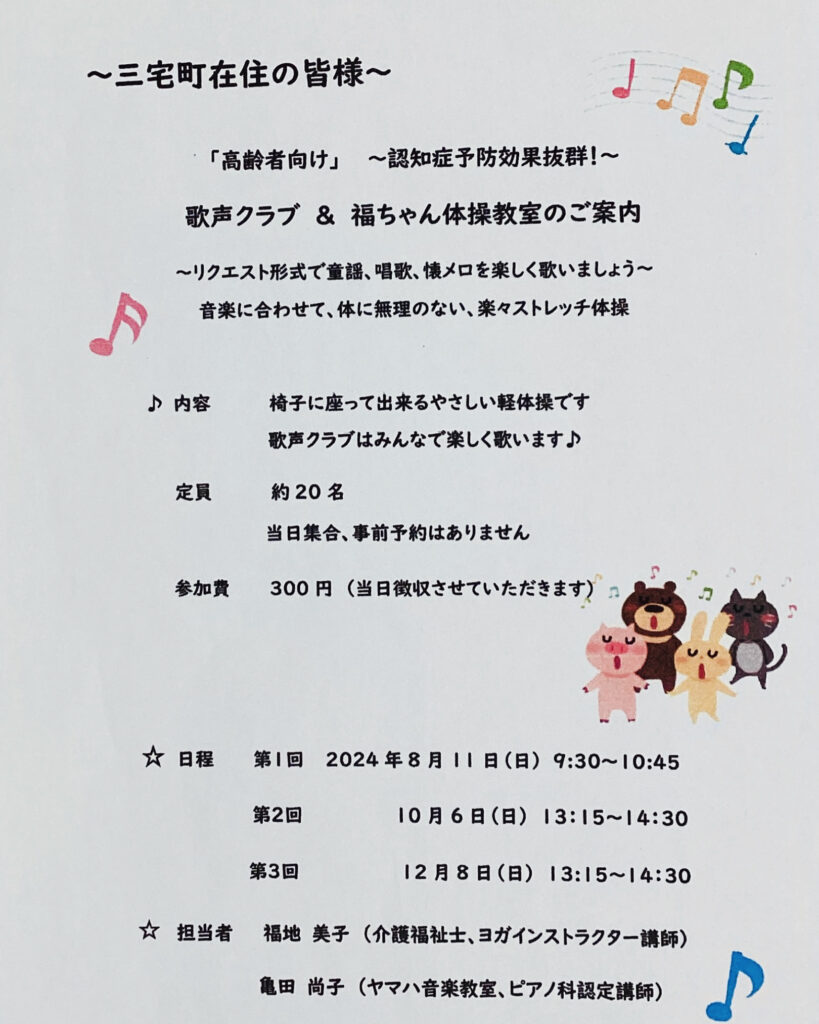 ～三宅町在住の皆様～
「高齢者向け」 ～認知症予防効果抜群！～
歌声クラブ ＆ 福ちゃん体操教室のご案内
～リクエスト形式で童謡、唱歌、懐メロを楽しく歌いましょう～
音楽に合わせて、体に無理のない、楽々ストレッチ体操
♪ 内容 椅子に座って出来るやさしい軽体操です
歌声クラブはみんなで楽しく歌います♪
定員 約20名
当日集合、事前予約はありません
参加費 300円 （当日徴収させていただきます）
☆ 日程 第1回 2024年8月11日（日） 9:30～10:45
第2回 10月6日（日） 13：15～14：30
第3回 12月8日（日） 13:15～14：30
☆ 担当者 福地 美子 （介護福祉士、ヨガインストラクター講師）
亀田 尚子 （ヤマハ音楽教室、ピアノ科認定講師）